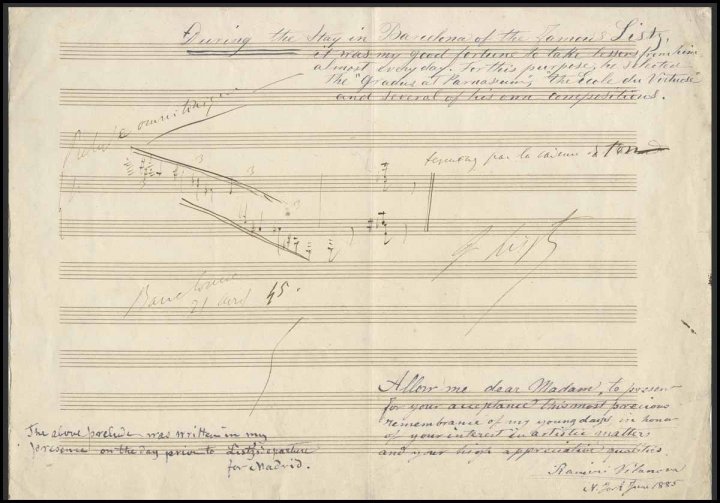 During the Stay in Barcelona of the famous Liszt,
it was my good fortune to take lessons from him
almost every day. For this purpose, he selected
the "Gradus at Parnassum", "the Ecole du Virtuose"
and several of his own compositions.
Prelude omnitonique
3
3
par la
F Liszt
Barcelone
21 avril 45.
Allow me dear Madame, to present
for your acceptance this most precious
remembrance of my young days in honor
of your interest in artistic matters
and your high appreciative qualities.
Vilanova
N. York June 1885
The above prelude was written in my
presence on the day prior to Liszt's departure
for Madrid.